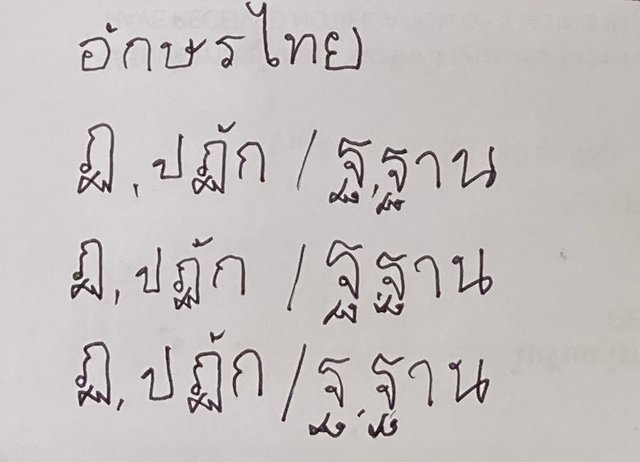 อักษรไทย
ฏ, ปฏัก / ฐ, ฐาน
ฏ, ปฏัก / ฐ ฐาน
ฏ, ปฏัก / ฐ, ฐาน